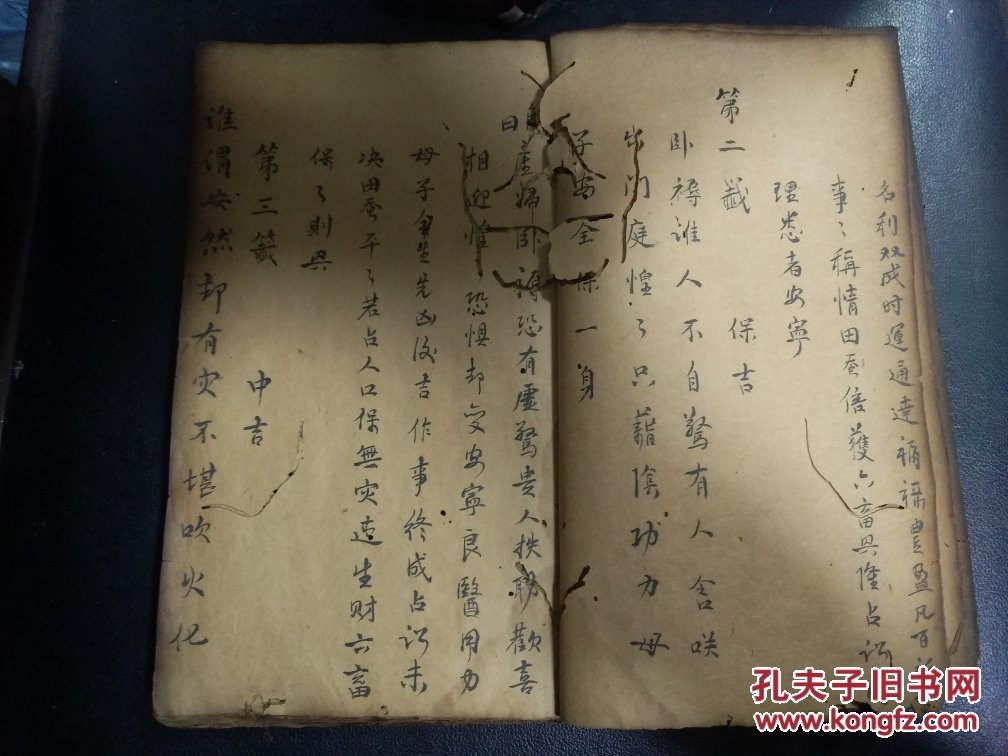 名利双成时運通達福禄豊盈凡百
事〻稱情田蚕倍獲六畜興隆占訟
理悉者安寧
第二籤 保吉
卧褥谁人不自驚有人含咲
出门庭惶〻只藉陰功力母
子安全保一身
曰產婦卧褥恐有虚驚贵人扶助歡喜
相迎惶 恐惧却変安寧良醫用力
母子 先凶後吉作事終成占訟未
决田蚕平〻若占人口保無灾造生财六畜
保〻則興
第三籤 中吉
谁谓安然却有灾不堪吹火化
孔夫子旧书网
www.kongfz.com